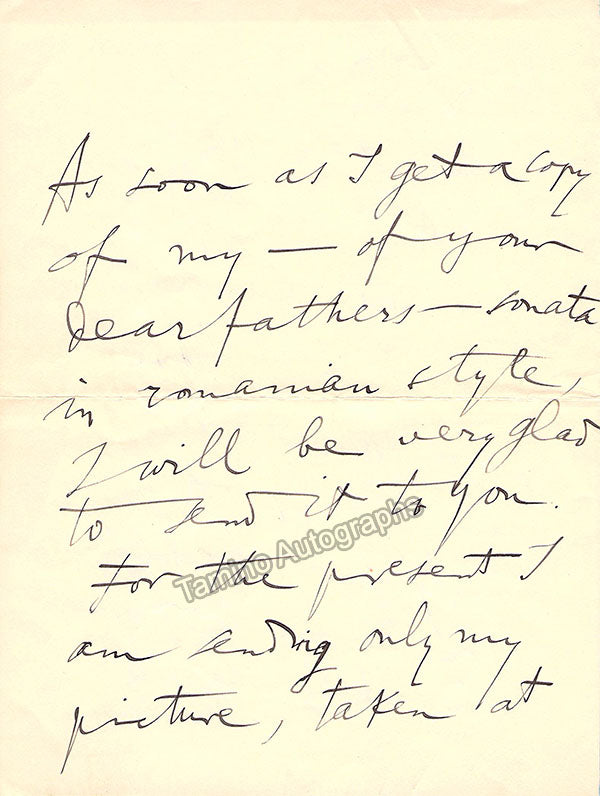 As soon as I get a copy
of my — of your
dear fathers — sonata
in romanian style,
I will be very glad
to send it to you.
Tamino Autographs
For the present I
am sending only my
picture, taken at